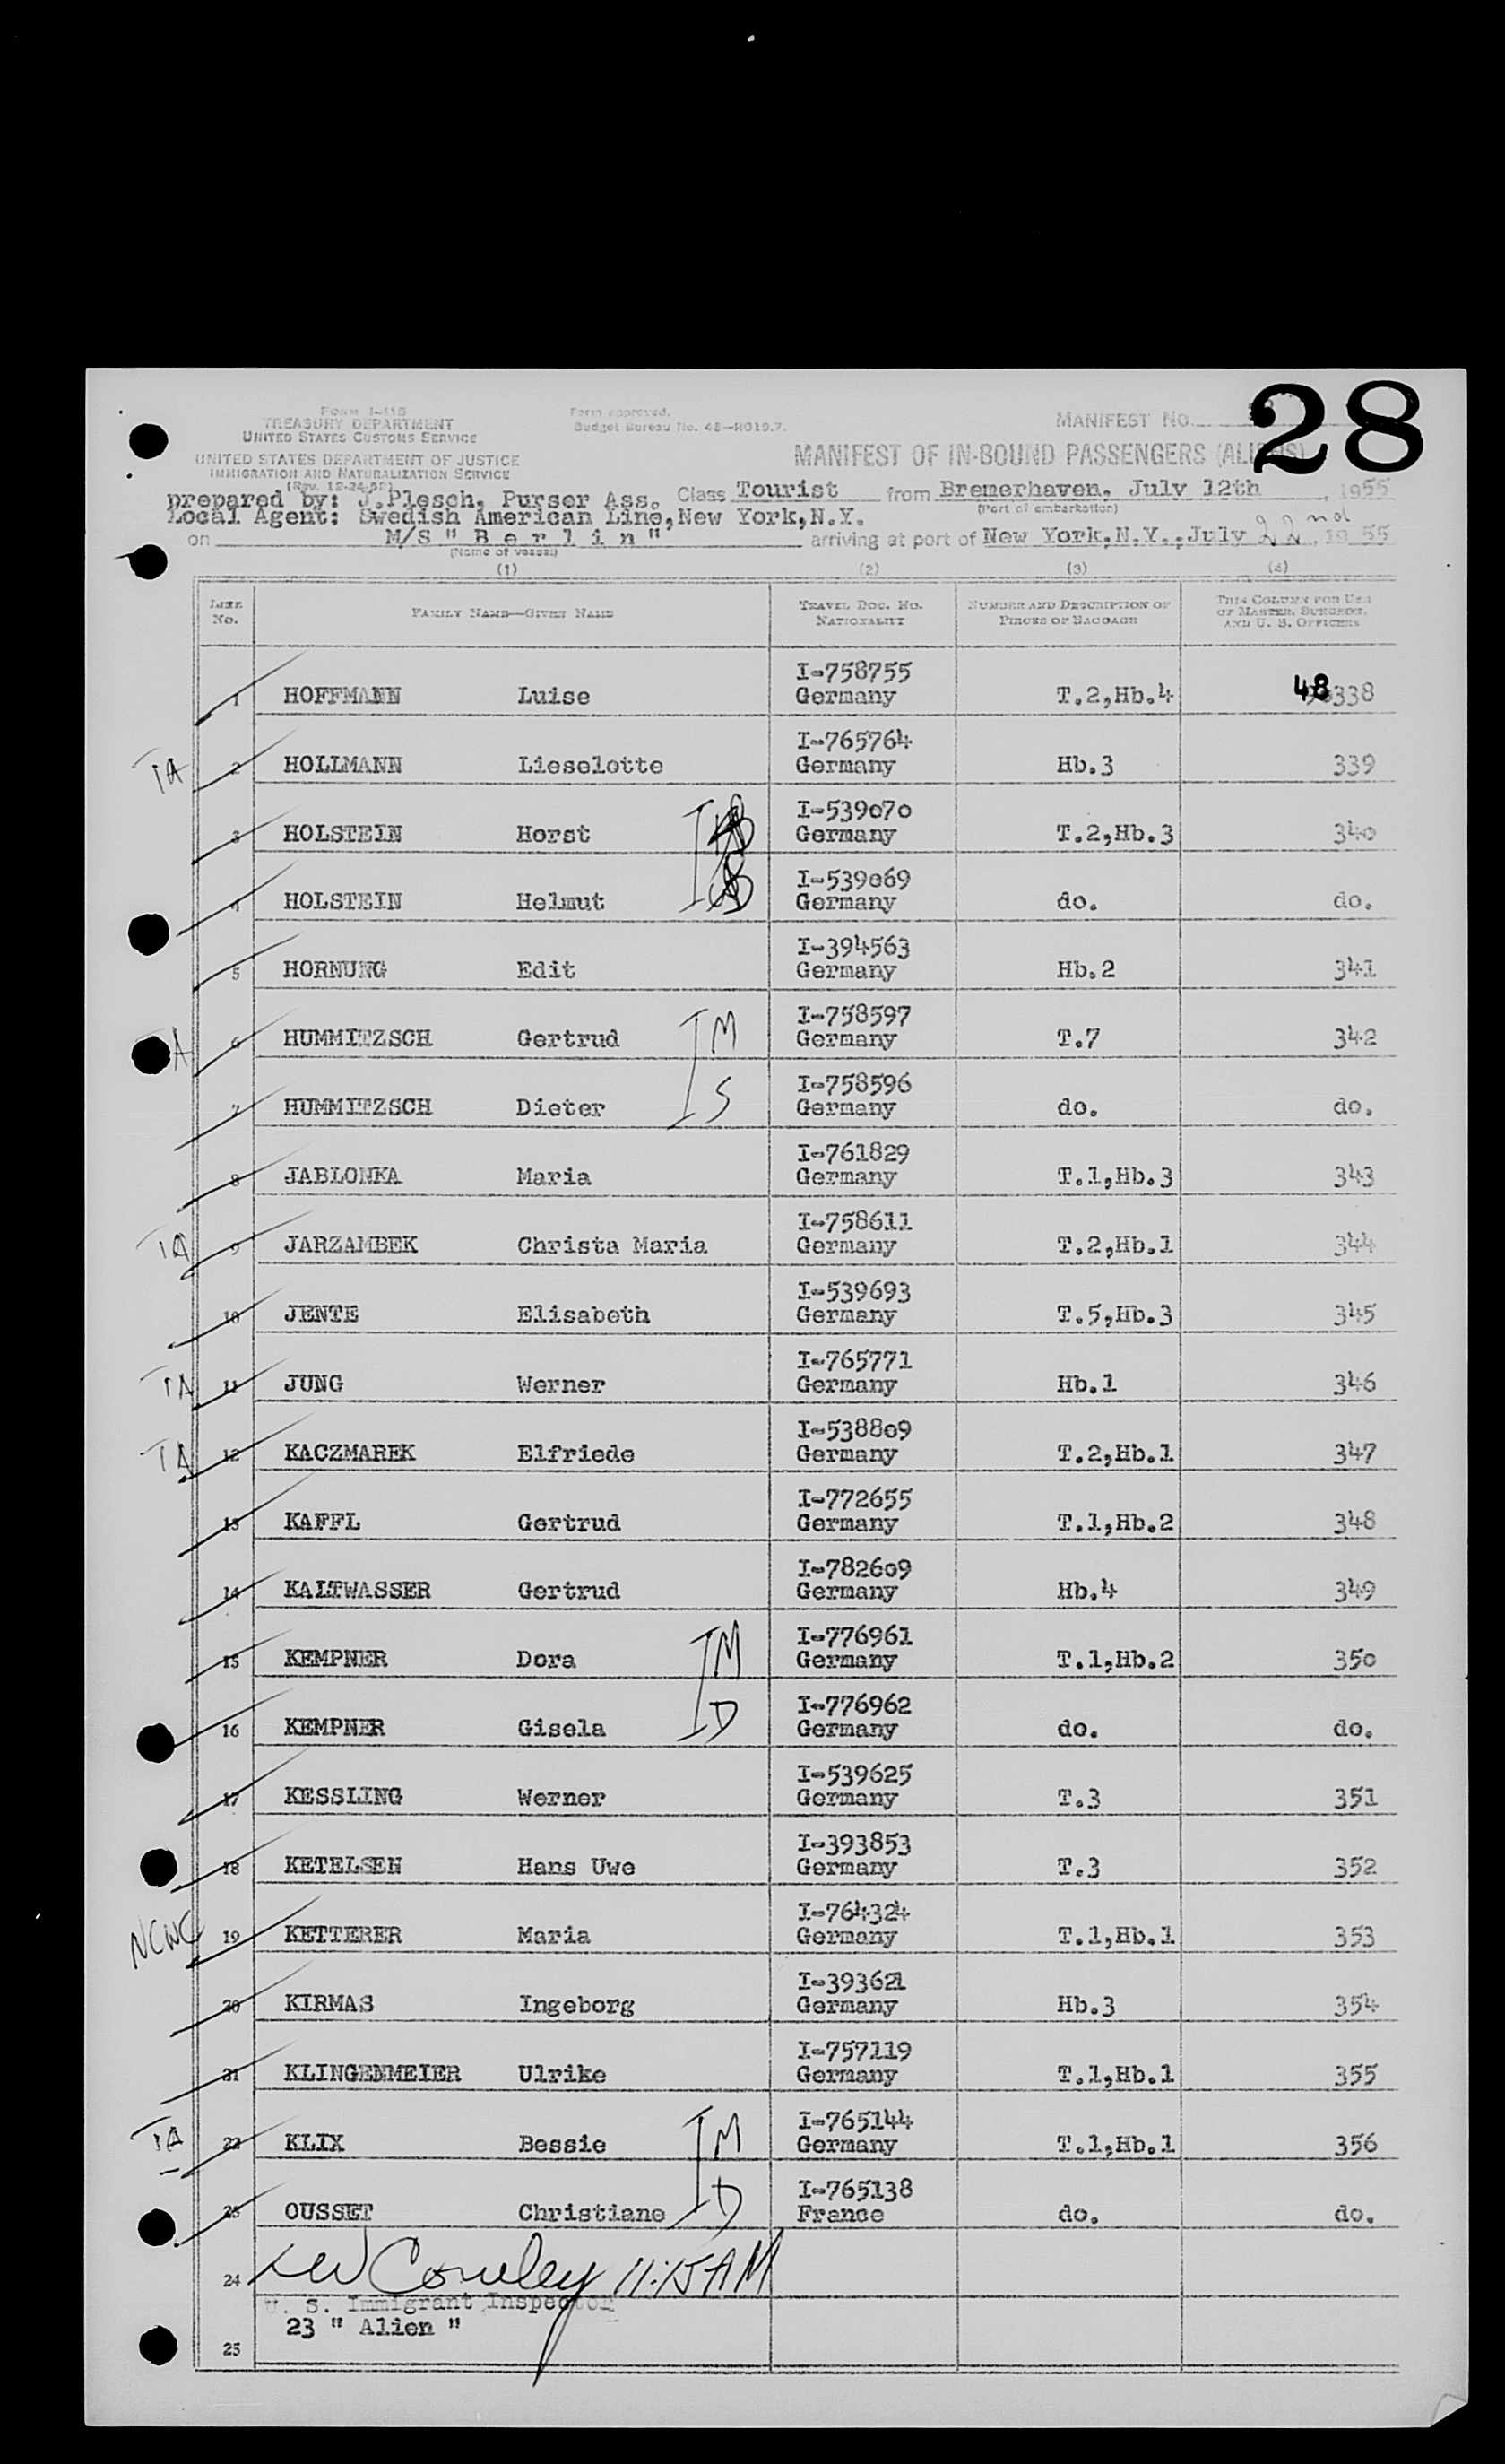 28
FORM I-418
TREASURY DEPARTMENT
UNITED STATES CUSTOMS SERVICE
UNITED STATES DEPARTMENT OF JUSTICE
IMMIGRATION AND NATURALIZATION SERVICE
(Rev. 12-24-52)
Form approved.
Budget Bureau No. 43-R019.7.
MANIFEST NO.
MANIFEST OF IN-BOUND PASSENGERS (ALIENS)
prepared by: J.Plesch, Purser Ass. Class Tourist from Bremerhaven, July 12th, 1955
(Port of embarkation)
Local Agent: Swedish American Line, New York, N.Y.
on M/S " B e r l i n " arriving at port of New York, N.Y., July 22nd, 1955
(Name of vessel)
(1) (2) (3) (4)
LINE NO. FAMILY NAME—GIVEN NAME TRAVEL DOC. NO. NATIONALITY NUMBER AND DESCRIPTION OF PIECES OF BAGGAGE THIS COLUMN FOR USE OF MASTER, SURGEON, AND U. S. OFFICERS
I-758755
1 HOFFMANN Luise Germany T.2,Hb.4 48338
I-765764
TA 2 HOLLMANN Lieselotte Germany Hb.3 339
I-539070
3 HOLSTEIN Horst Germany T.2,Hb.3 340
I-539069
4 HOLSTEIN Helmut Germany do. do.
I-394563
5 HORNUNG Edit Germany Hb.2 341
I-758597
A 6 HUMMITZSCH Gertrud M Germany T.7 342
I-758596
7 HUMMITZSCH Dieter S Germany do. do.
I-761829
8 JABLONKA Maria Germany T.1,Hb.3 343
I-758611
TA 9 JARZAMBEK Christa Maria Germany T.2,Hb.1 344
I-539693
10 JENTE Elisabeth Germany T.5,Hb.3 345
I-765771
TA 11 JUNG Werner Germany Hb.1 346
I-538809
TA 12 KACZMAREK Elfriede Germany T.2,Hb.1 347
I-772655
13 KAFFL Gertrud Germany T.1,Hb.2 348
I-782609
14 KALTWASSER Gertrud Germany Hb.4 349
I-776961
15 KEMPNER Dora M Germany T.1,Hb.2 350
I-776962
16 KEMPNER Gisela D Germany do. do.
I-539625
17 KESSLING Werner Germany T.3 351
I-393853
18 KETELSEN Hans Uwe Germany T.3 352
I-764324
NCWC 19 KETTERER Maria Germany T.1,Hb.1 353
I-393621
20 KIRMAS Ingeborg Germany Hb.3 354
I-757119
21 KLINGENMEIER Ulrike Germany T.1,Hb.1 355
I-765144
TA 22 KLIX Bessie M Germany T.1,Hb.1 356
I-765138
23 OUSSET Christiane D France do. do.
24 Cowley 11:15 AM
U. S. Immigrant Inspector
23 " Alien "
25